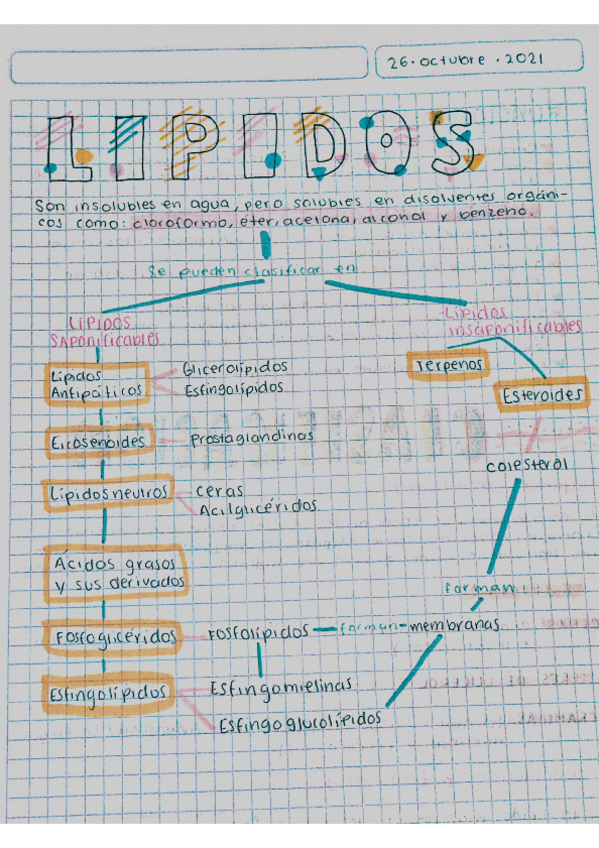 26.octubre.2021
LIPIDOS
Son insolubles en agua, pero solubles en disolventes orgáni-
cos como: cloroformo, éter, acetona, alcohol y benzeno.
Se pueden clasificar en
Lípidos
saponificables
Lípidos
insaponificables
Lípidos
Antipáticos
Glicerolípidos
Esfingolípidos
Terpenos
Esteroides
Eicosenoides
Prostaglandinas
colesterol
Lípidos neutros
ceras
Acilglicéridos
Ácidos grasos
y sus derivados
forman
Fosfoglicéridos
Fosfolípidos
forman
membranas
Esfingolípidos
Esfingomielinas
Esfingoglucolípidos